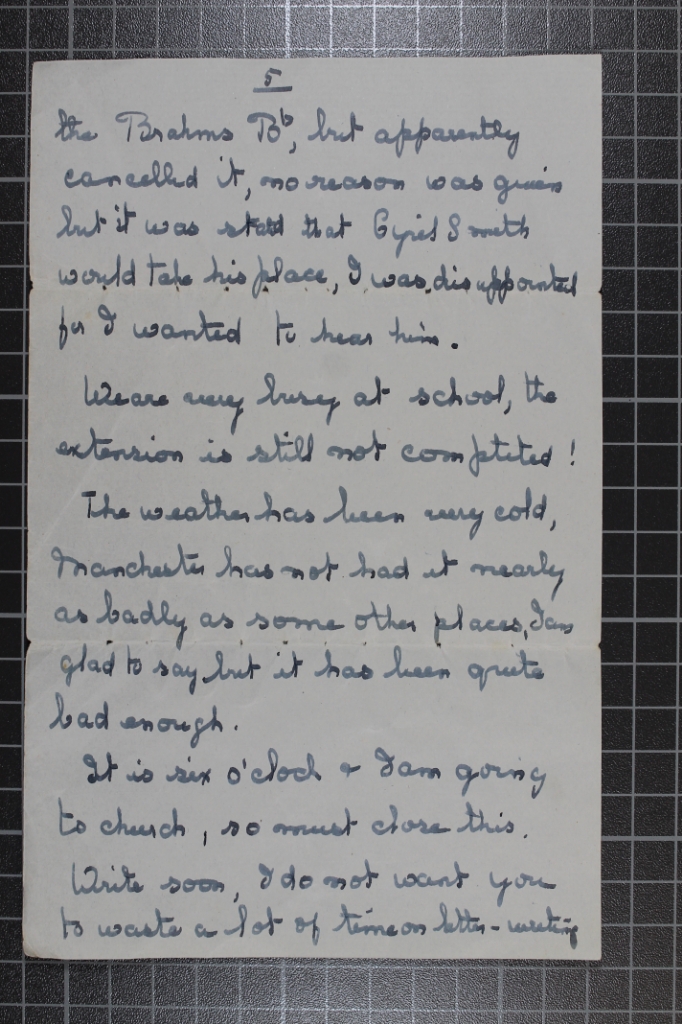 5
the Brahms B♭, but apparently
cancelled it, no reason was given
but it was stated that Cyril Smith
would take his place, I was disappointed
for I wanted to hear him.
We are very busy at school, the
extension is still not completed!
The weather has been very cold,
Manchester has not had it nearly
as badly as some other places, I am
glad to say, but it has been quite
bad enough.
It is six o'clock & I am going
to church, so must close this.
Write soon, I do not want you
to waste a lot of time on letter-writing